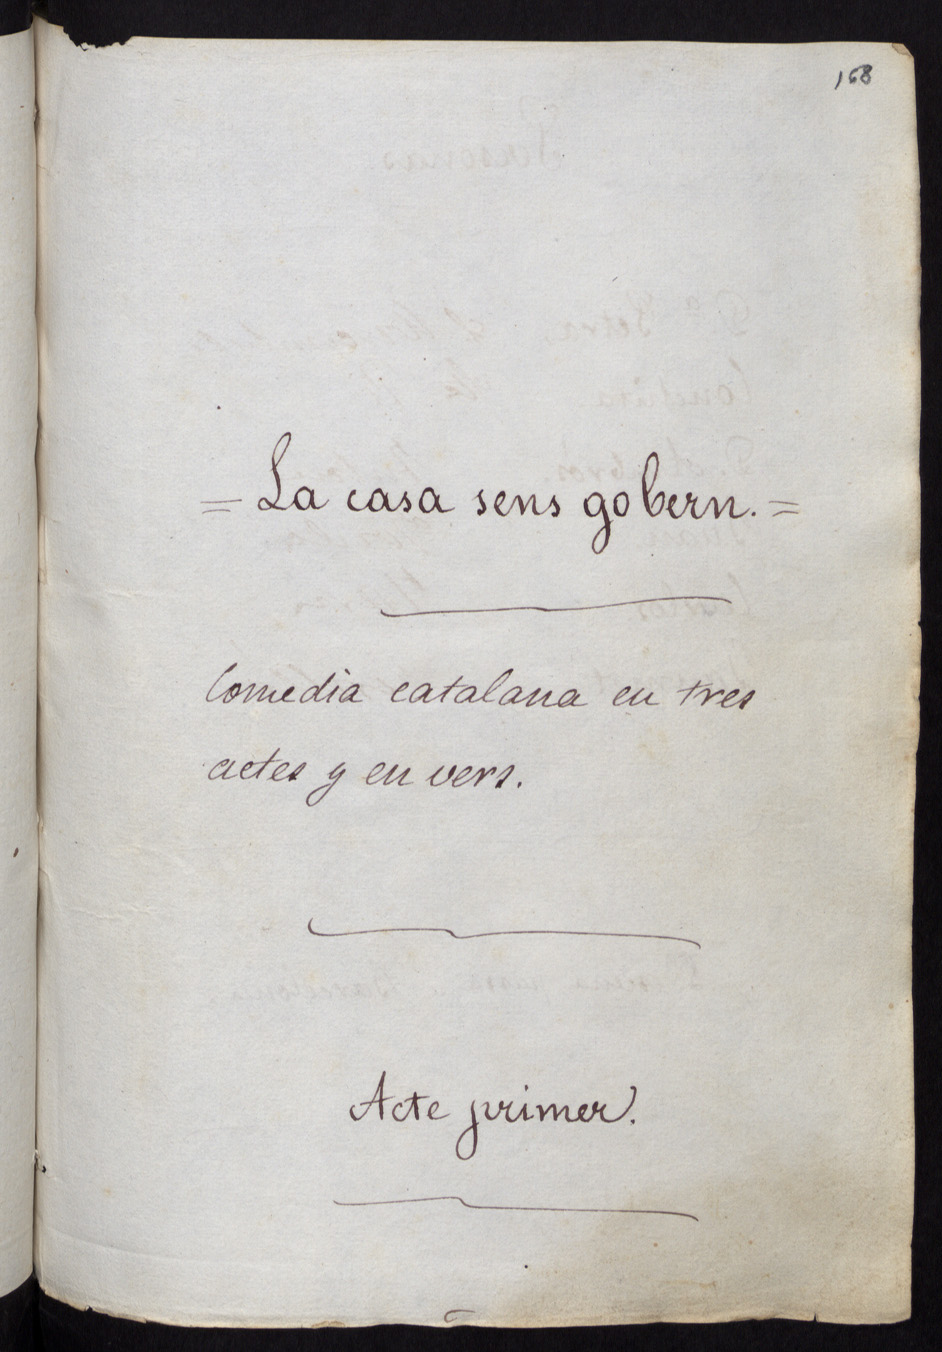 168
= La casa sens gobern. =
Comedia catalana en tres
actes y en vers.
Acte primer.